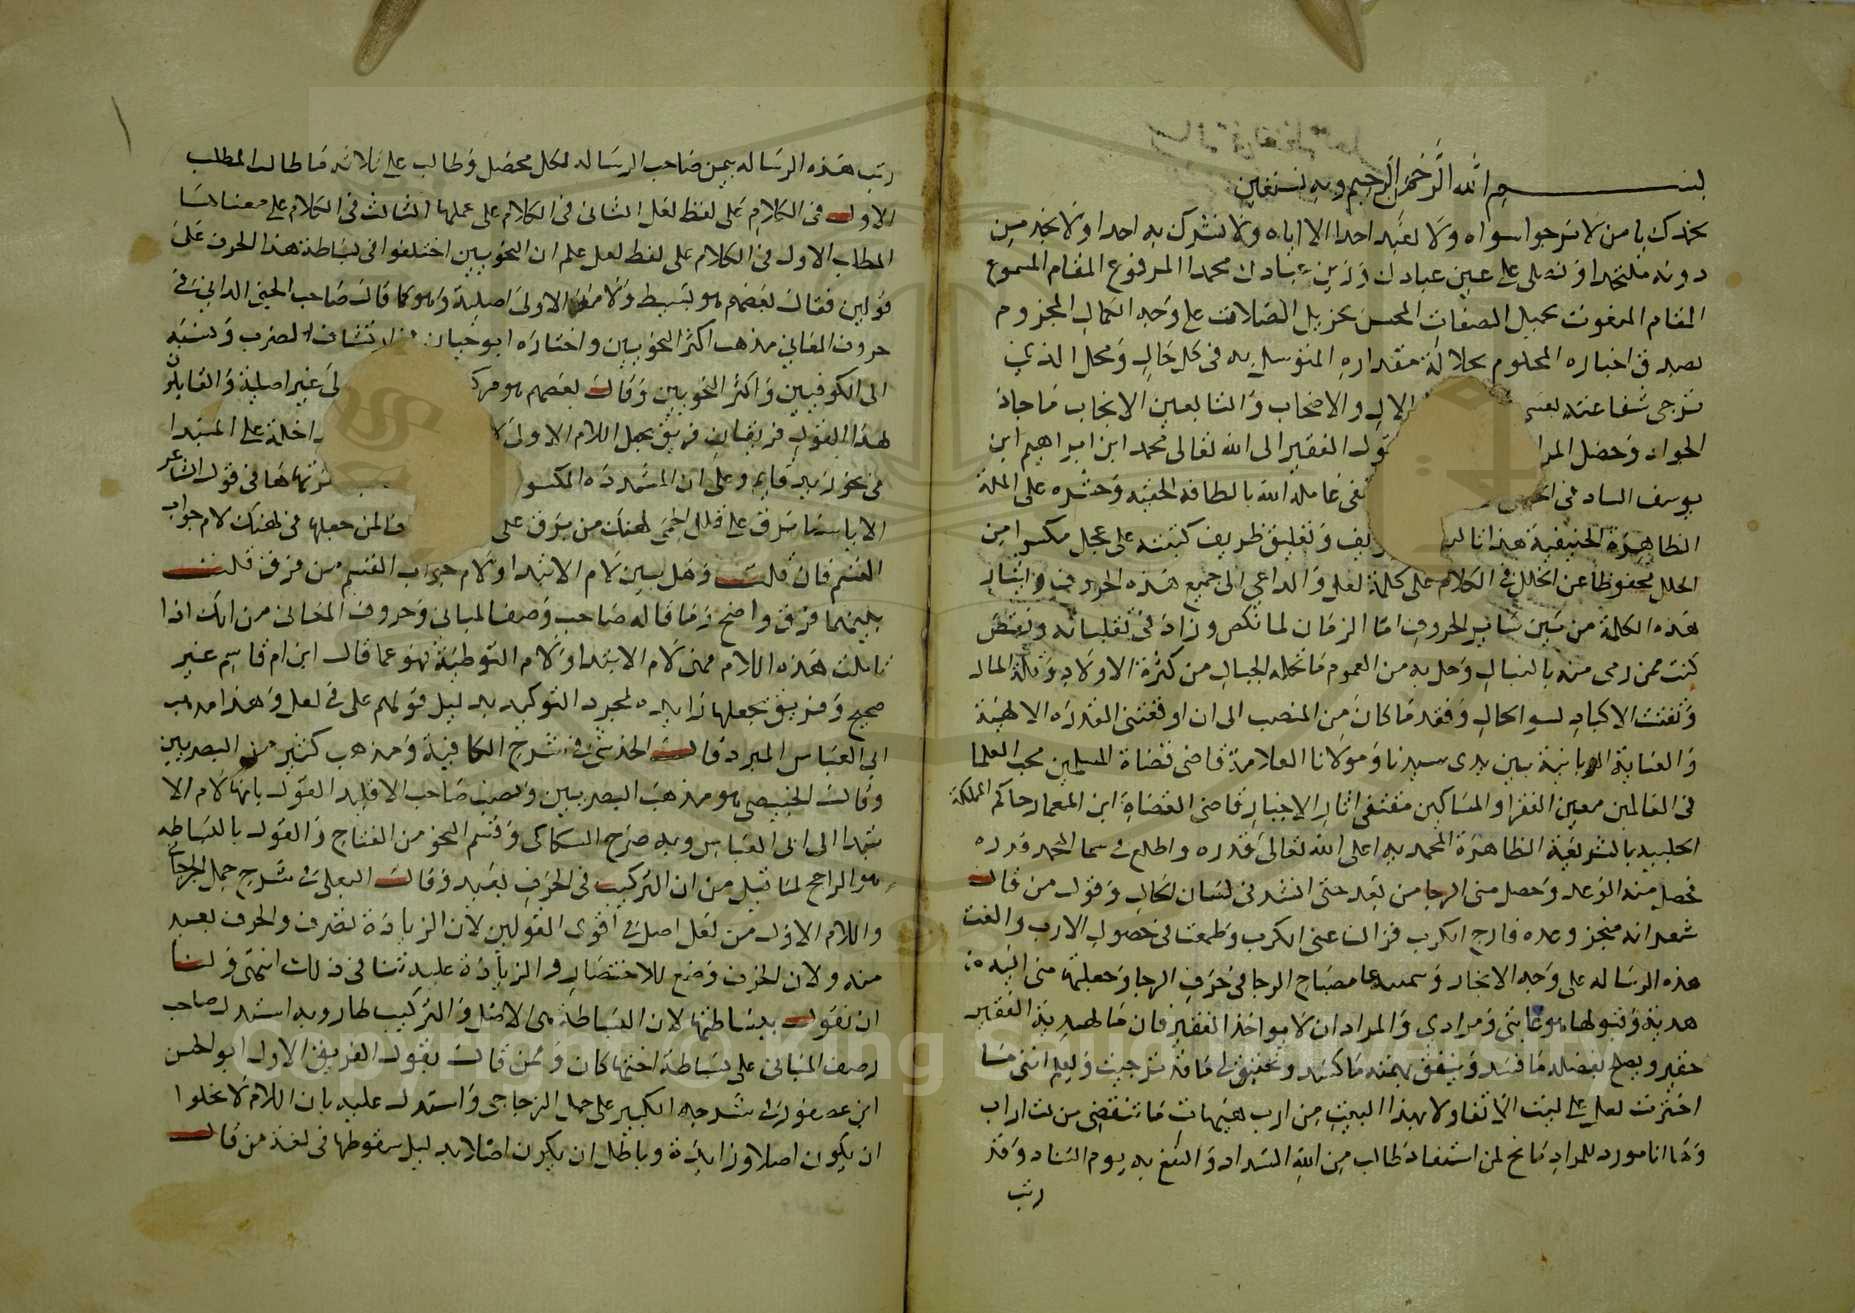 بسم الله الرحمن الرحيم وبه نستعين
نحمدك يا من لا نرجوا سواه ولا نعبد احدا الا اياه ولا نشرك به احدا ولا نجد من
دونه ملتحدا ونصلي على عين عبادك وزين عبادك محمدا المرفوع المقام المسموع
المقام المنعوت بجميل الصفات المحسن بجزيل الصلات على وجه الكمال المجزوم
بصدق اخباره المعلوم بجلالة مقداره المتوسل به في كل حال ومحل الذي
نرجى شفاعته الال والاصحاب والتابعين الانجاب ما جاد
الجواد وحصل المراد يقول الفقير الى الله تعالى محمد ابن ابراهيم ابن
يوسف الحنفي عامله الله بالطافه الخفيه وحشره على الملة
الطاهرة الحنيفية هذا تاليف وتعليق ظريف كتبته على عجل من
الخلل محفوظا عن الخلل في الكلام على كلمة لعل والداعي الى جميع هذه الحروف وايثار
هذه الكلمة من بين ساير الحروف اما الزمان لما نكص وزاد في تقلباته ونقص
كنت ممن رمى منه بالنبال وحل به من الهموم ما تحمله الجبال من كثرة الاولاد وقلة المال
وتفتت الاكباد لسو الحال وفقد ما كان من المنصب الى ان اوقعتني القدره الالهية
والعناية الربانية بين يدي سيدنا ومولانا العلامة قاضي قضاة المسلمين محب العلما
في العالمين معين الفقرا والمساكين مقتفى اثار الاخيار قاضي القضاة ابن المعمار حاكم المملكة
الحلبيه بالشريعة الطاهرة المحمديه اعلى الله تعالى قدره واطلع في سما المجد بدره
فحصل منه الوعد وحصل مني الرجا من بعد حتى انشد في لسان الحال وقول من قال
شعر انه منجز وعده فارج الكرب فزال عني الكرب وطمعت في حصول الارب والفت
هذه الرساله على وجه الايجاز وسميتها مصباح الرجا في حرف الرجا وجعلتها مني اليه
هدية وقبولها هو غايتي ومرادي والمراد ان لا يواخذ الفقير فان ما لهديه الفقير
حقير ويصلح بفضله ما فسد وينفق بهمته ما كسد ويحقق لي ما قد ترجيت وليعلم انني ما
اخترت لعل على ليت الا تفاولا بهذا البيت من ارب هيهات ما تنقضي من لت اراب
وها انا مورد للمراد مانح لمن استفاد طالب من الله السداد والنفع به يوم التناد وقد
رتب
رتب هذه الرساله بيمن صاحب الرساله لكل محصل وطالب على ثلاثه مطالب المطلب
الاول في الكلام على لفظ لعل الثاني في الكلام على عملها الثالث في الكلام على معناها
المطلب الاول في الكلام على لفظ لعل اعلم ان النحويين اختلفوا في بساطة هذا الحرف على
قولين فقال بعضهم هو بسيط ولامه الاولى اصلية وهو كما قال صاحب الجنى الداني في
حروف المعاني مذهب اكثر النحويين واختاره ابو حيان في ارتشاف الضرب ونسبه
الى الكوفيين واكثر النحويين وقال بعضهم هو مركب غير اصلية والقايلون
لهذا القول فريقان فريق يجعل اللام الاولى داخلة على المبتدا
في نحو لزيد قايم وعلى ان المشدده المكسورة في قول الشاعر
الا يا سنا برق على قلل الحمى لهنك من برق على فالمن جعلها في لهنك لام جواب
القسم فان قلت وهل بين لام الابتدا ولام جواب القسم من فرق قلت
بينهما فرق واضح وما قاله صاحب وصف المباني وحروف المعاني من انك اذا
تاملت هذه اللام ممن لام الابتدا ولام التوطية فهو عما قال ابن ام قاسم غير
صحيح وفريق يجعلها زايده لمجرد التوكيد بدليل قولهم على في لعل وهذا مذهب
ابي العباس المبرد قال في شرح الكافية ومذهب كثير من البصريين
وقال الخبيصي هو مذهب البصريين ونصب صاحب الاقليد القول بانها لام الا
بتدا الى ابي العباس وبه صرح السكاكي وقسم النحو من المفتاح والقول بالبساطه
هو الراجح لما قيل من ان التركيب في الحرف بعيد وقال البعلي في شرح جمل الجرجاني
واللام الاولى من لعل اصل في اقوى القولين لان الزيادة تصرف والحرف بعيد
منه ولان الحرف وضع للاختصار والزيادة عليه تنافي ذلك انتهى ولنا
ان نقول ببساطتها لان البساطة هي الاصل والتركيب طار وبه استدل صاحب
رصف المباني على بساطة اختها كان ومن قال بقول الفريق الاول ابو الحسن
ابن عصفور في شرحه الكبير على جمل الزجاجي واستدل عليه بان اللام لا يخلوا
ان يكون اصلا وزايدة وباطل ان يكون اصلا بدليل سقوطها في لغة من قال